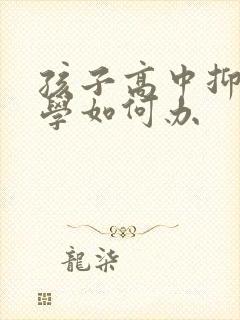 孩子高中抑
學如何办
龍柒